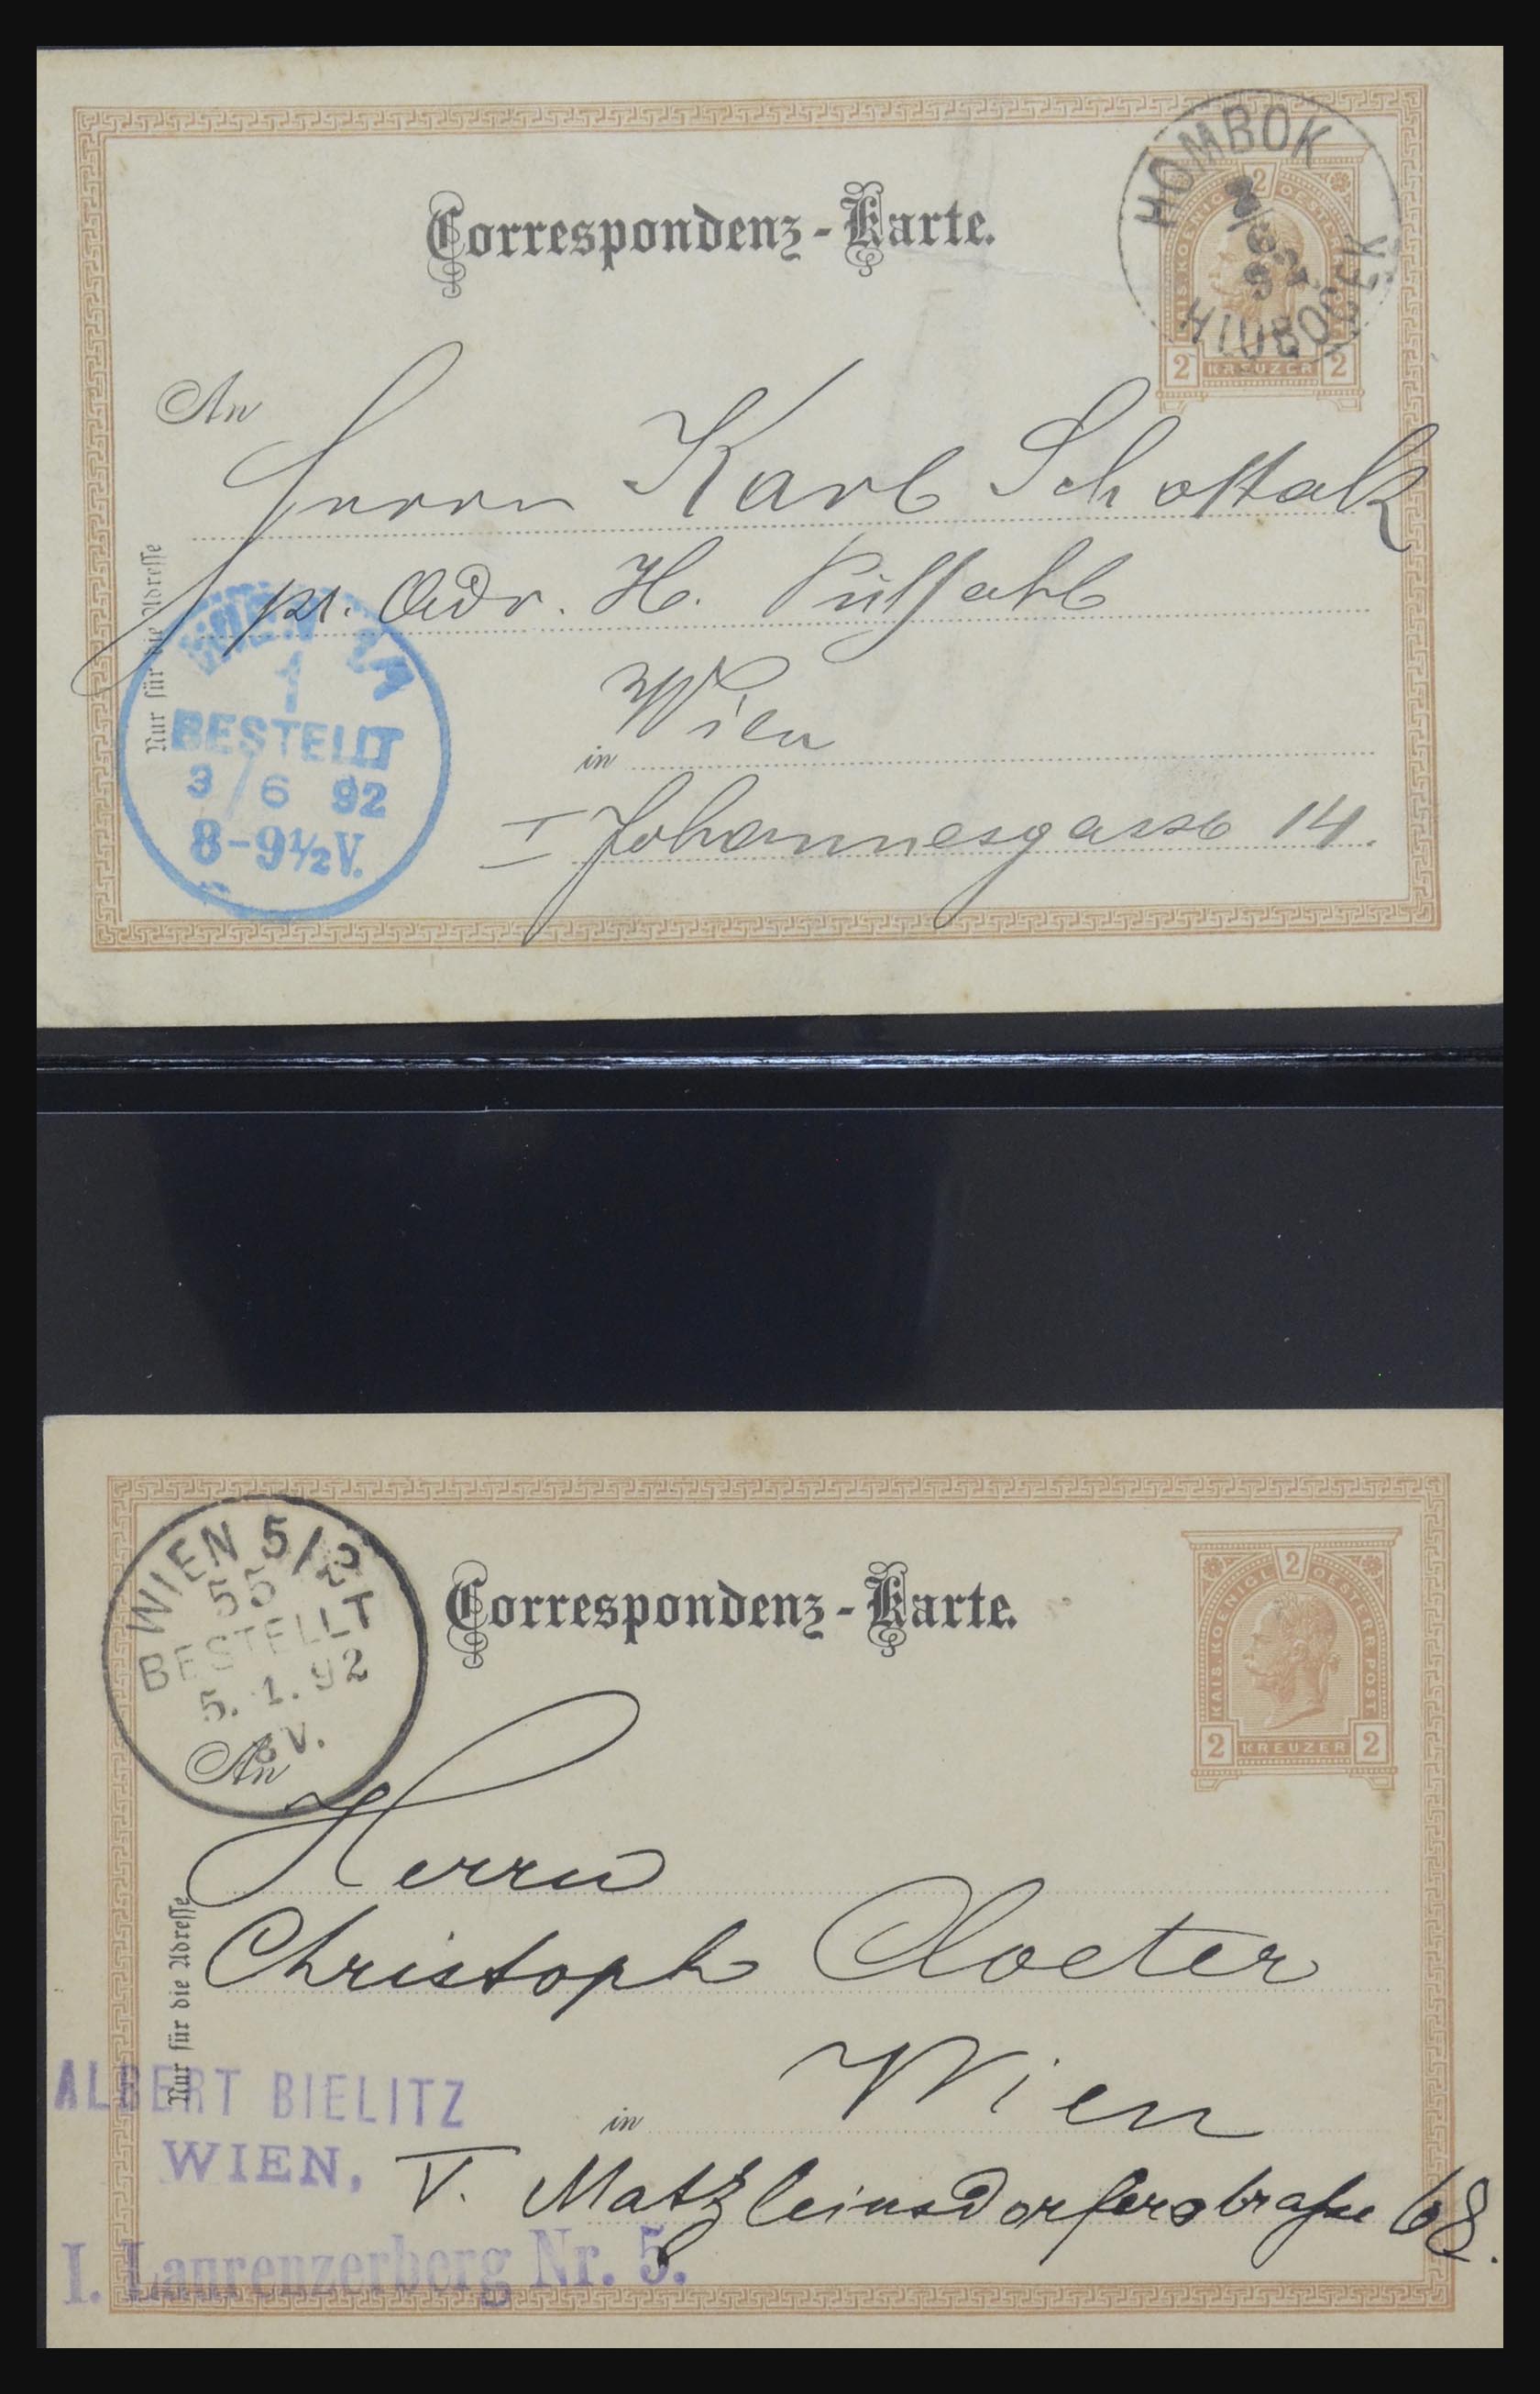 Correspondenz-Karte.
HOMBOK
2/6 92
HLUBOČEK
KAIS. KOENIGL. OESTERR. POST
2
2 KREUZER 2
An
Herrn Karl Schostalk
pr. Adr. H.
Nur für die Adresse
WIEN 1/1
1
BESTELLT
3/6 92
8-9½V.
in Wien
I Johannesgasse 14.
WIEN 5/2
55
BESTELLT
5.1.92
8V.
Correspondenz-Karte.
2
KAIS. KOENIGL. OESTERR. POST
2 KREUZER 2
An
Herrn
Christoph Cloeter
Nur für die Adresse
in Wien
ALBERT BIELITZ
WIEN,
V. Matzleinsdorferstraße 68.
I. Laurenzerberg Nr. 5.